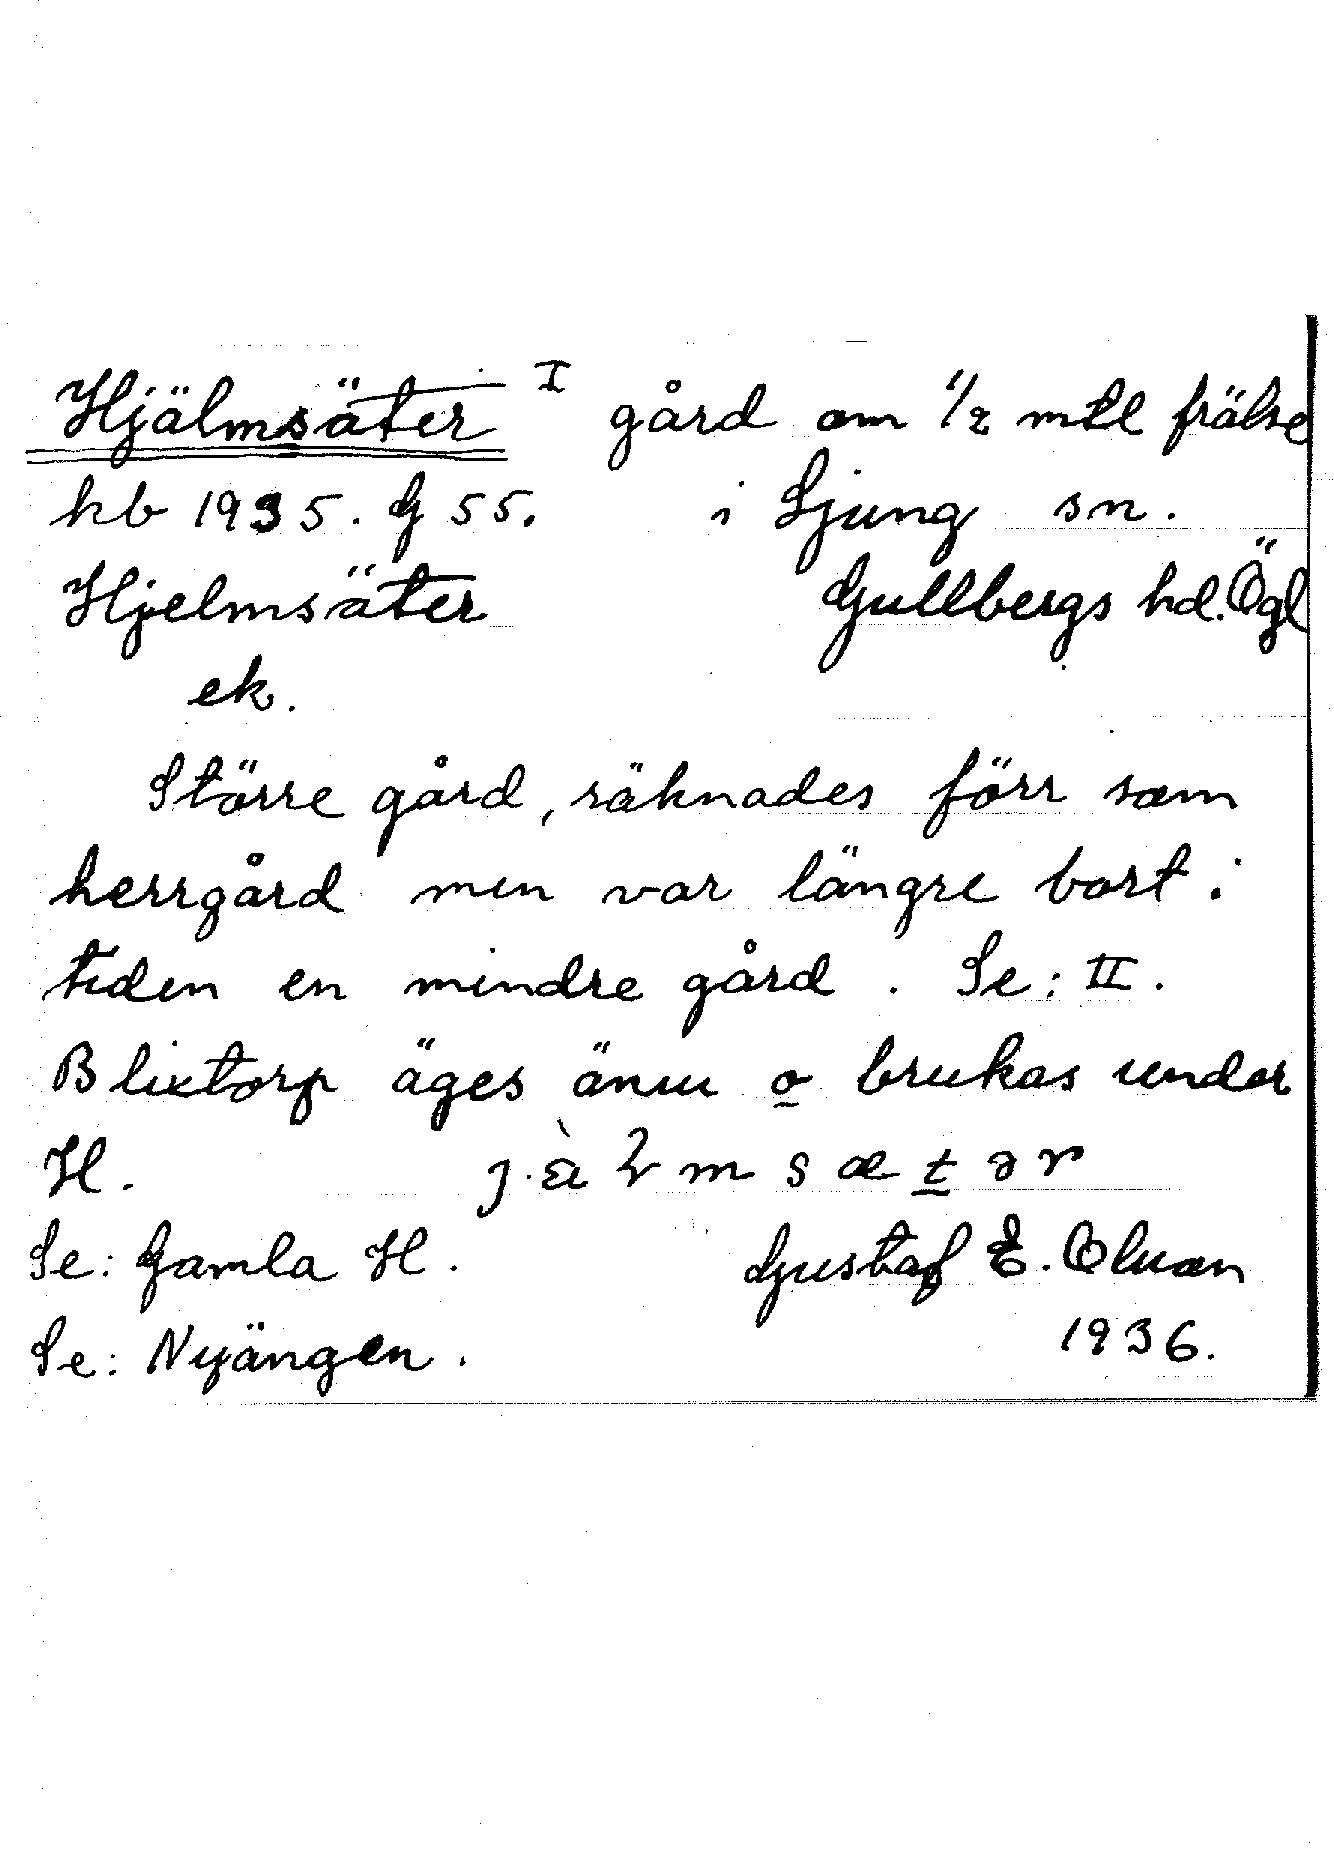 Hjälmsäter I gård om 1/2 mtl frälse
hb 1935. G 55. i Ljung sn.
Hjelmsäter Gullbergs hd. Ögl
ek.
Större gård, räknades förr som
herrgård men var längre bort i
tiden en mindre gård. Se: II.
Blixtorp äges ännu o brukas under
H.
Se: Gamla H. Gustaf E.
Se: Nyängen. 1936.